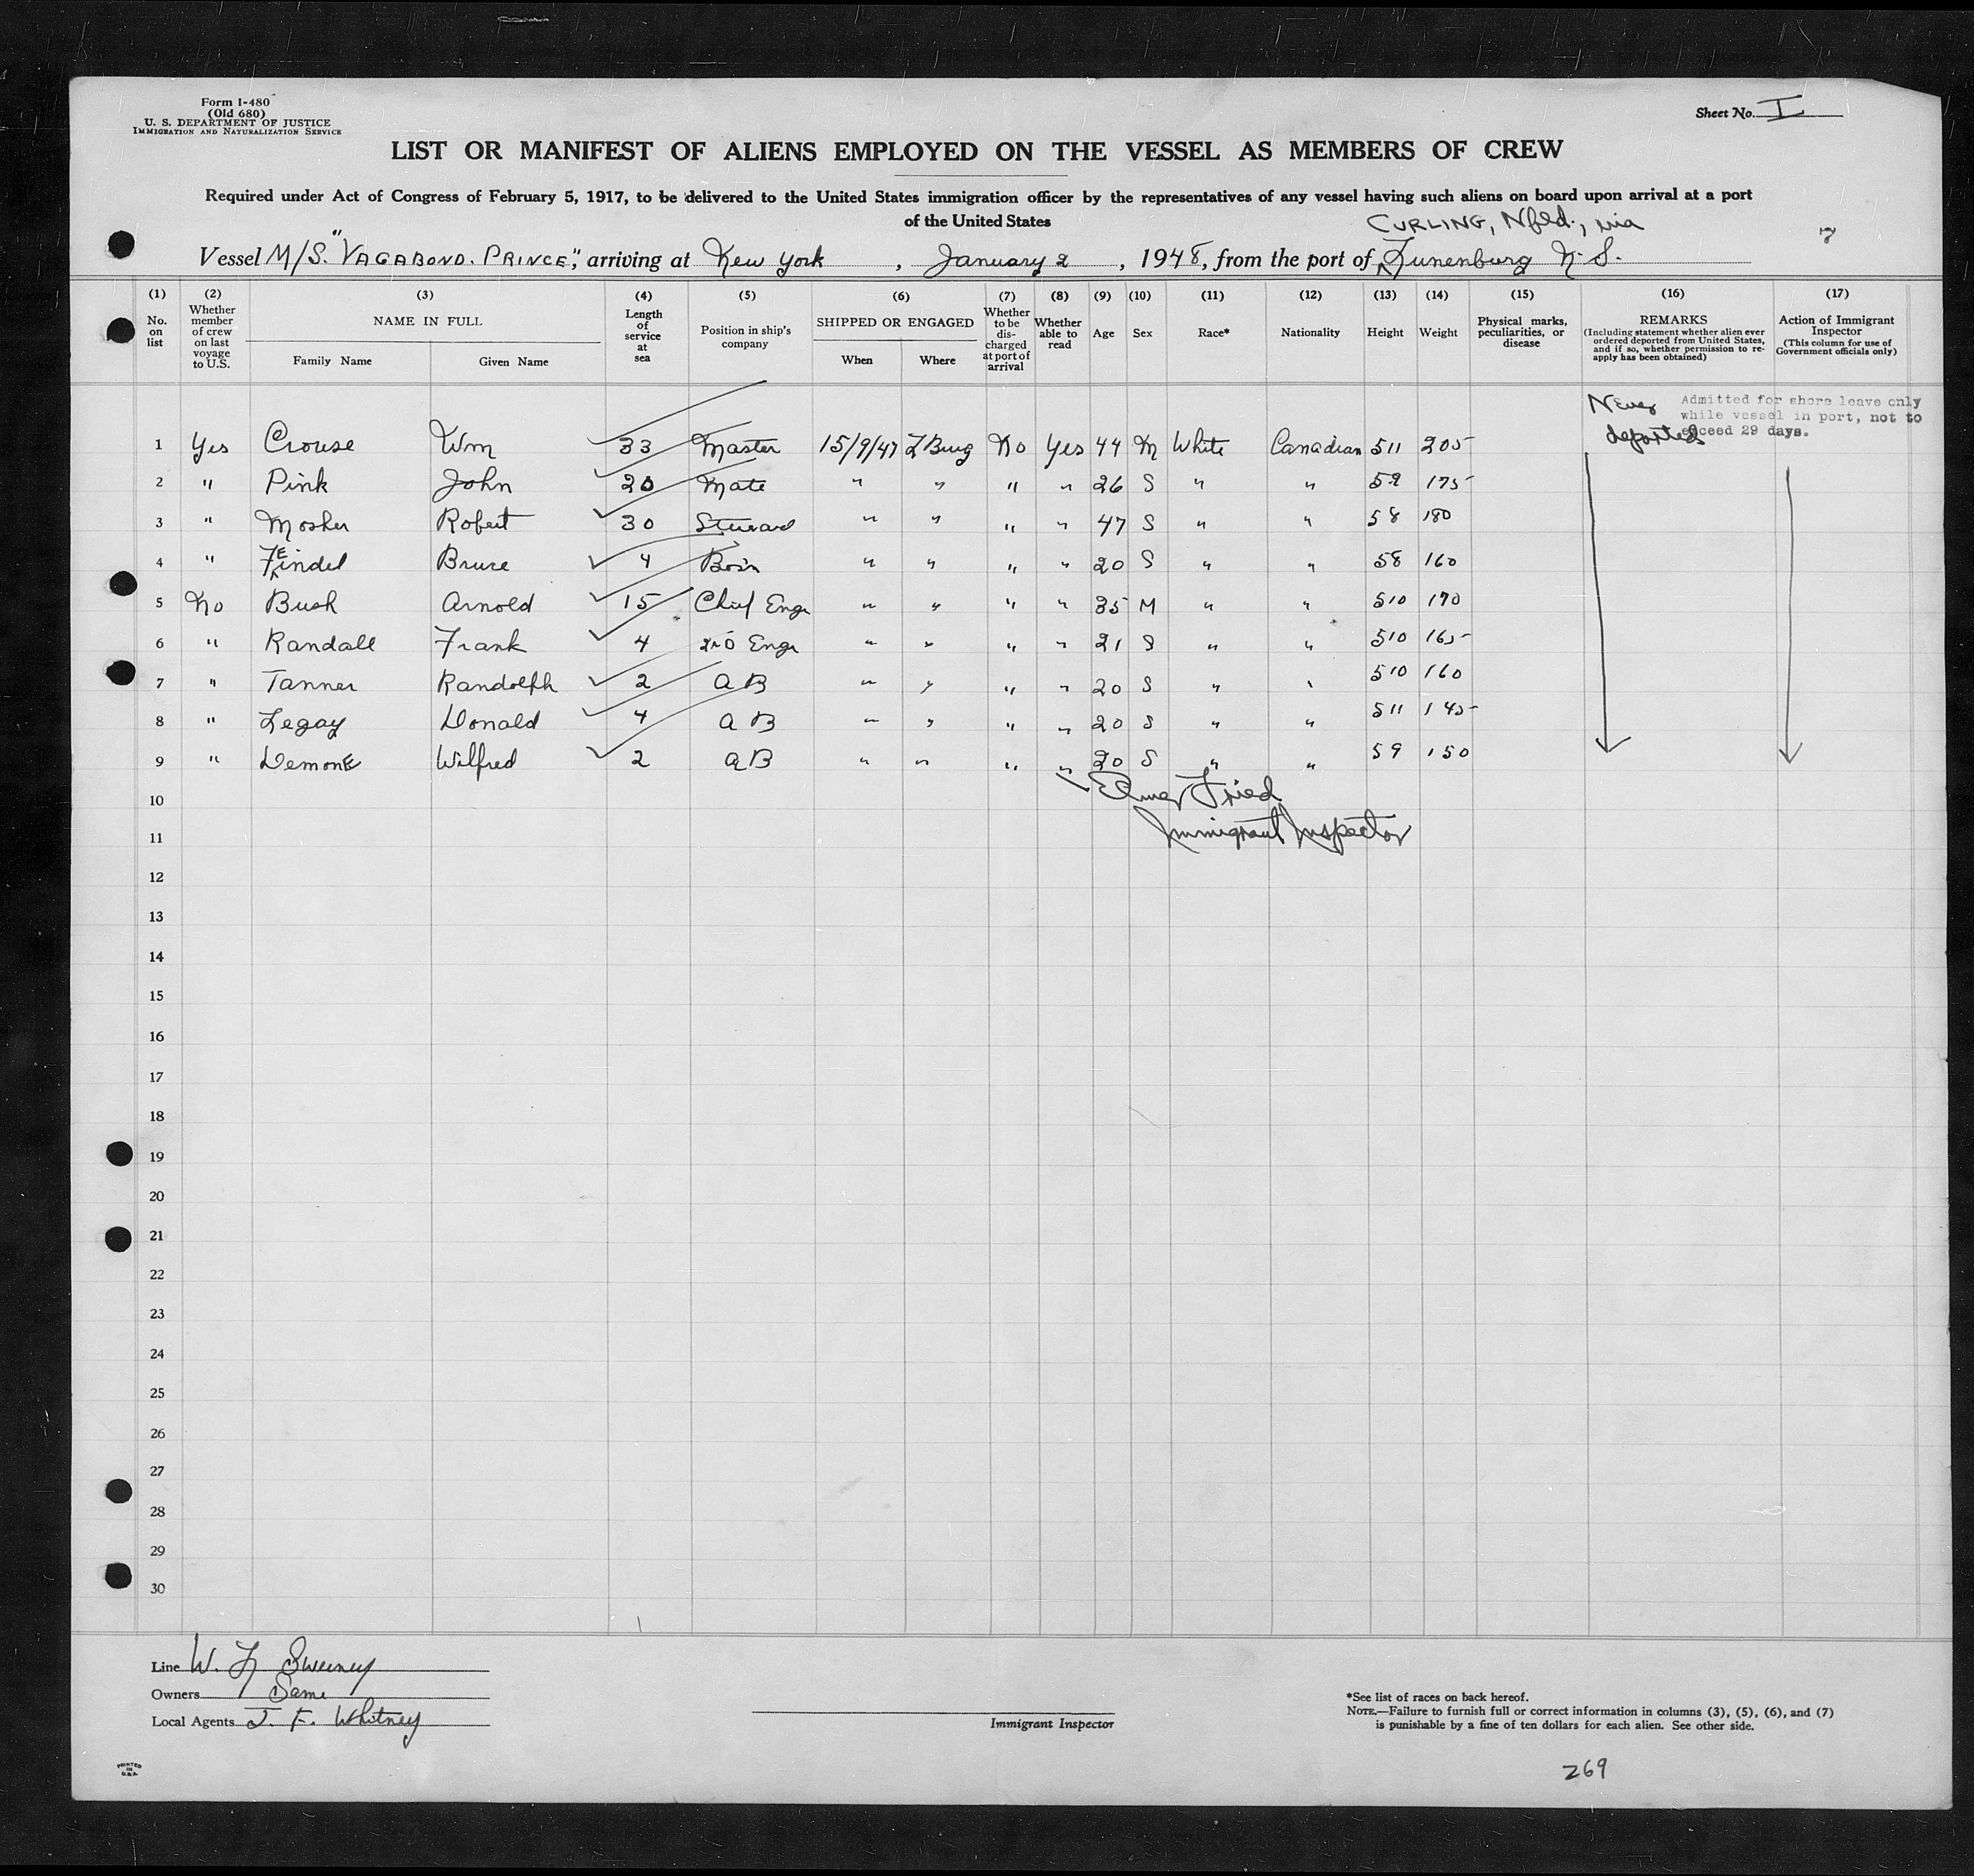 Form I-480
(Old 680)
U. S. DEPARTMENT OF JUSTICE
IMMIGRATION AND NATURALIZATION SERVICE
Sheet No. I
LIST OR MANIFEST OF ALIENS EMPLOYED ON THE VESSEL AS MEMBERS OF CREW
Required under Act of Congress of February 5, 1917, to be delivered to the United States immigration officer by the representatives of any vessel having such aliens on board upon arrival at a port
of the United States
CURLING, Nfld., via
Vessel M/S. "VAGABOND. PRINCE", arriving at New York, January 2, 1948, from the port of Lunenburg N. S.
(1) (2) (3) (4) (5) (6) (7) (8) (9) (10) (11) (12) (13) (14) (15) (16) (17)
No. on list Whether member of crew on last voyage to U.S. NAME IN FULL Family Name Given Name Length of service at sea Position in ship's company SHIPPED OR ENGAGED When Where Whether to be discharged at port of arrival Whether able to read Age Sex Race* Nationality Height Weight Physical marks, peculiarities, or disease REMARKS (Including statement whether alien ever ordered deported from United States, and if so, whether permission to re-apply has been obtained) Action of Immigrant Inspector (This column for use of Government officials only)
Never deported
Admitted for shore leave only
while vessel in port, not to
exceed 29 days.
1 Yes Crouse Wm 33 Master 15/9/47 L Burg No Yes 44 M White Canadian 511 205
2 " Pink John 20 Mate " " " " 26 S " " 59 175
3 " Mosher Robert 30 Steward " " " " 47 S " " 58 180
4 " FEindel Bruce 4 Bos'n " " " " 20 S " " 58 160
5 No Bush Arnold 15 Chief Engr " " " " 35 M " " 510 170
6 " Randall Frank 4 2ND Engr " " " " 21 S " " 510 165
7 " Tanner Randolph 2 AB " " " " 20 S " " 510 160
8 " Legay Donald 4 AB " " " " 20 S " " 511 145
9 " Demone Wilfred 2 AB " " " " 20 S " " 59 150
10 Elmer Fried
11 Immigrant Inspector
12
13
14
15
16
17
18
19
20
21
22
23
24
25
26
27
28
29
30
Line W. F Sweeney
Owners Same
Local Agents J. F. Whitney
Immigrant Inspector
*See list of races on back hereof.
NOTE.—Failure to furnish full or correct information in columns (3), (5), (6), and (7)
is punishable by a fine of ten dollars for each alien. See other side.
PRINTED
IN
U.S.A.
269